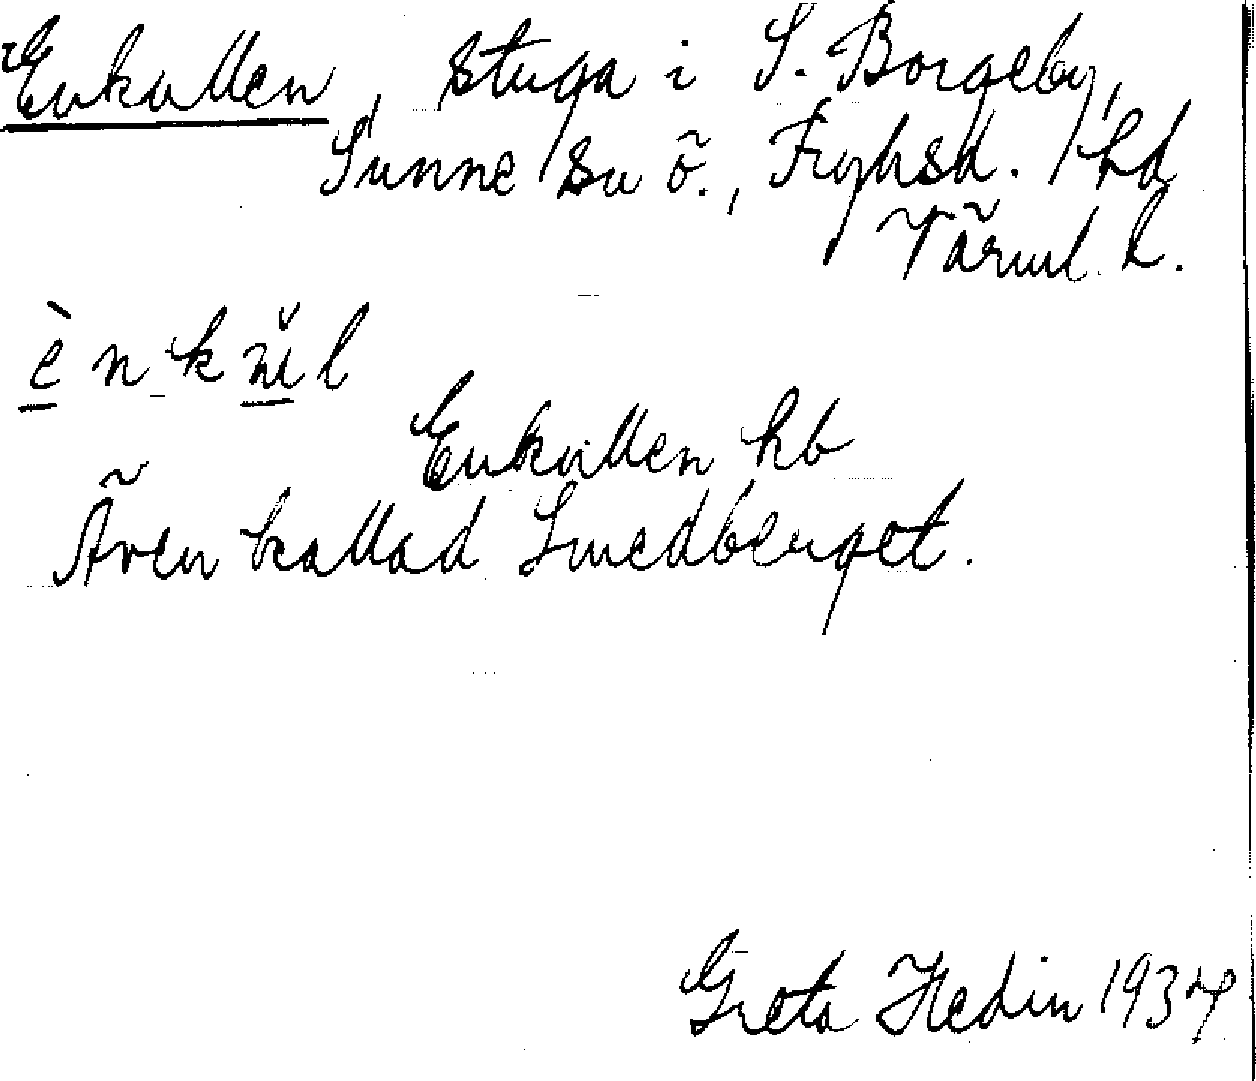 Enkullen, stuga i S. Borgeby,
Sunne sn ö., Fryksd. hd
Värml. l.
è n - k ŭ l
Enkullen hb
Även kallad Smedberget.
Greta Hedin 1937